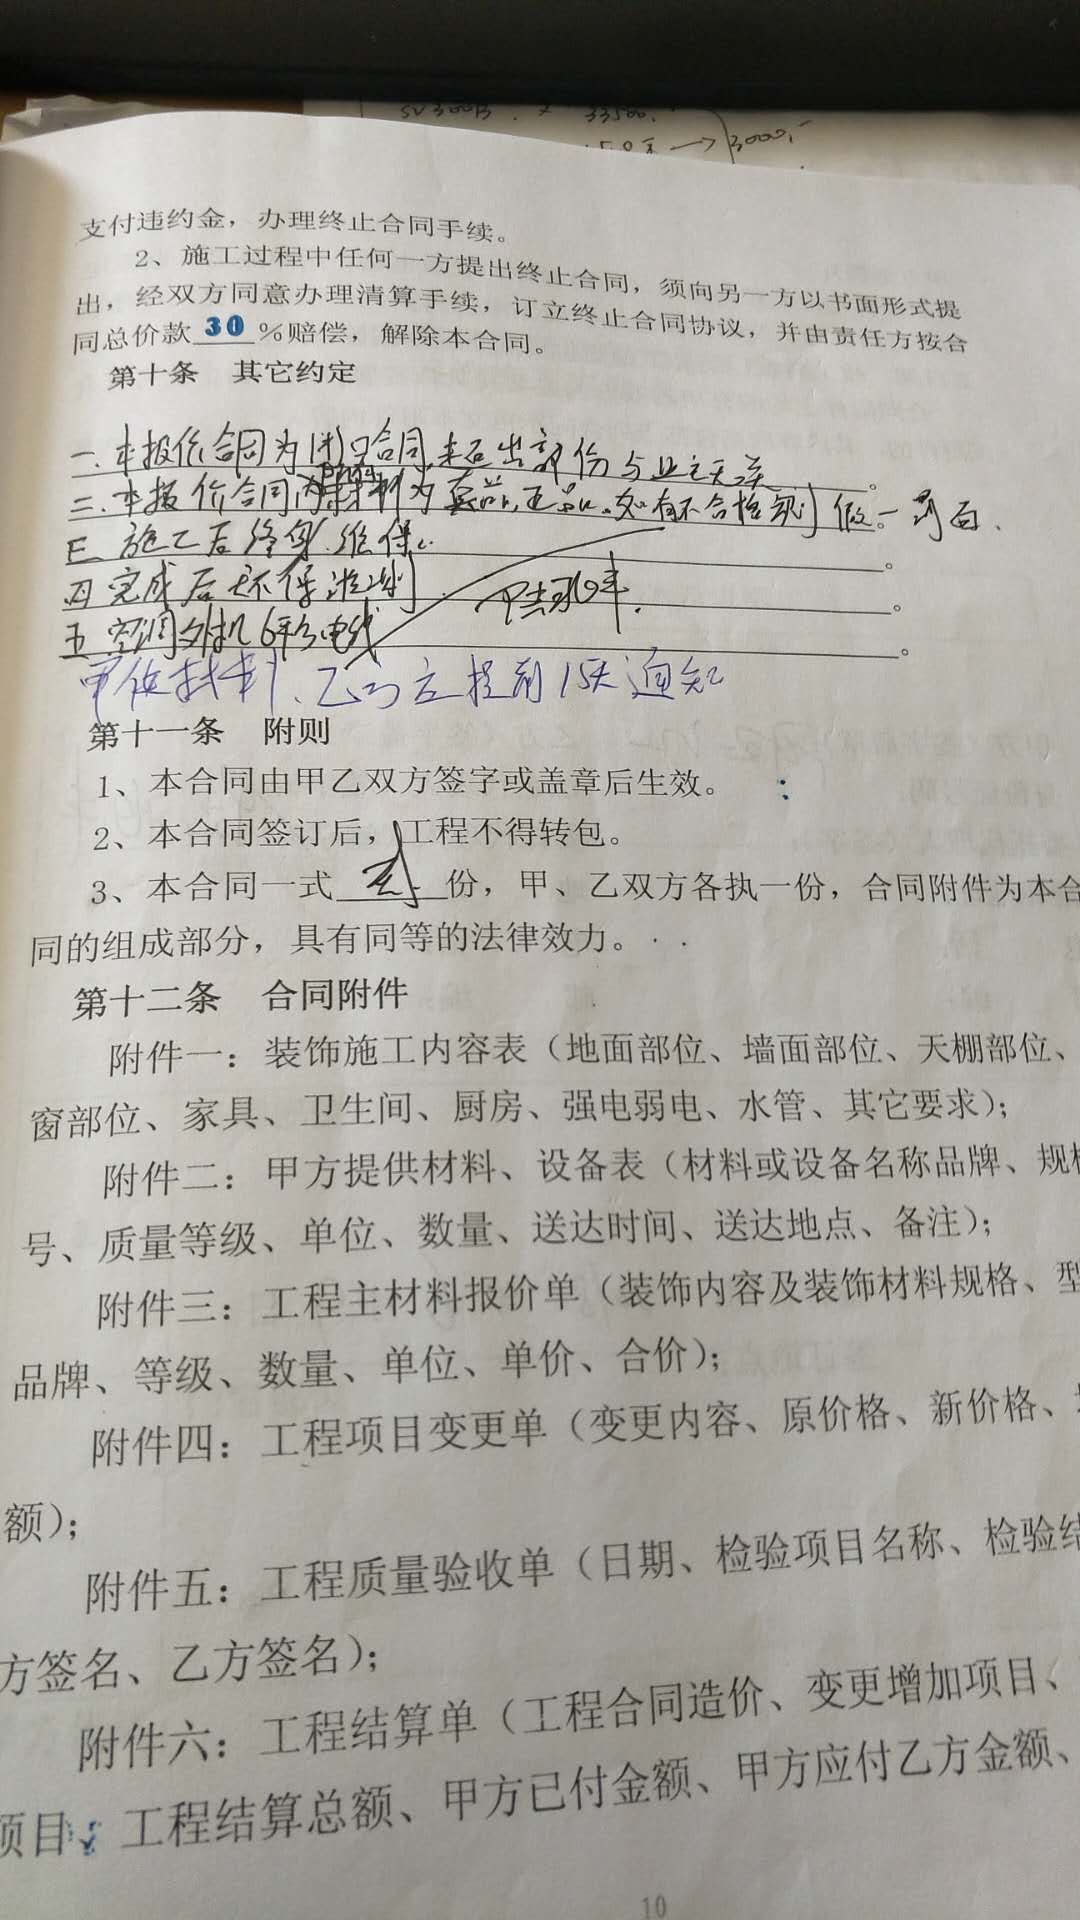 33500.
3000.-
支付违约金，办理终止合同手续。
2、施工过程中任何一方提出终止合同，须向另一方以书面形式提
出，经双方同意办理清算手续，订立终止合同协议，并由责任方按合
同总价款 30 %赔偿，解除本合同。
第十条 其它约定
一.本报价合同为闭口合同,未召出部份与业主无关。
二.本报价合同内 材料为真品,正品。如有不合格 假一罚百.
三 施工后终身.维保。
四 完成后环保
五 空调外机6平方电线
甲供材料、乙方应提前15天通知
第十一条 附则
1、本合同由甲乙双方签字或盖章后生效。
2、本合同签订后，工程不得转包。
3、本合同一式 贰 份，甲、乙双方各执一份，合同附件为本合
同的组成部分，具有同等的法律效力。
第十二条 合同附件
附件一：装饰施工内容表（地面部位、墙面部位、天棚部位、
窗部位、家具、卫生间、厨房、强电弱电、水管、其它要求）；
附件二：甲方提供材料、设备表（材料或设备名称品牌、规格
号、质量等级、单位、数量、送达时间、送达地点、备注）；
附件三：工程主材料报价单（装饰内容及装饰材料规格、型
品牌、等级、数量、单位、单价、合价）；
附件四：工程项目变更单（变更内容、原价格、新价格、
额）；
附件五：工程质量验收单（日期、检验项目名称、检验结
方签名、乙方签名）；
附件六：工程结算单（工程合同造价、变更增加项目、
项目；工程结算总额、甲方已付金额、甲方应付乙方金额、
10